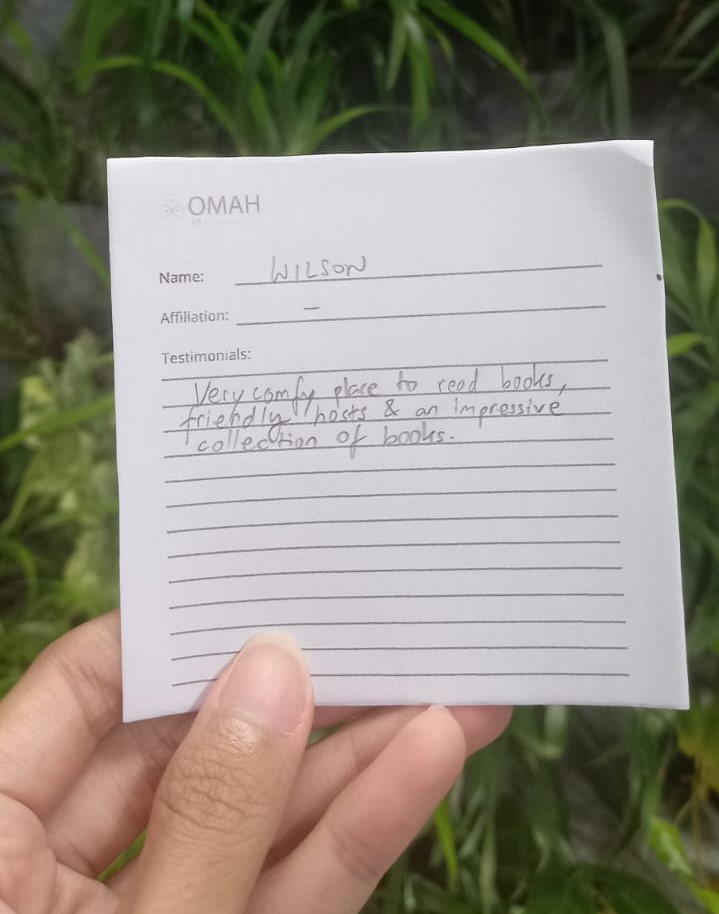 OMAH
Name: WILSON
Affiliation: –
Testimonials:
Very comfy place to read books,
friendly hosts & an impressive
collection of books.